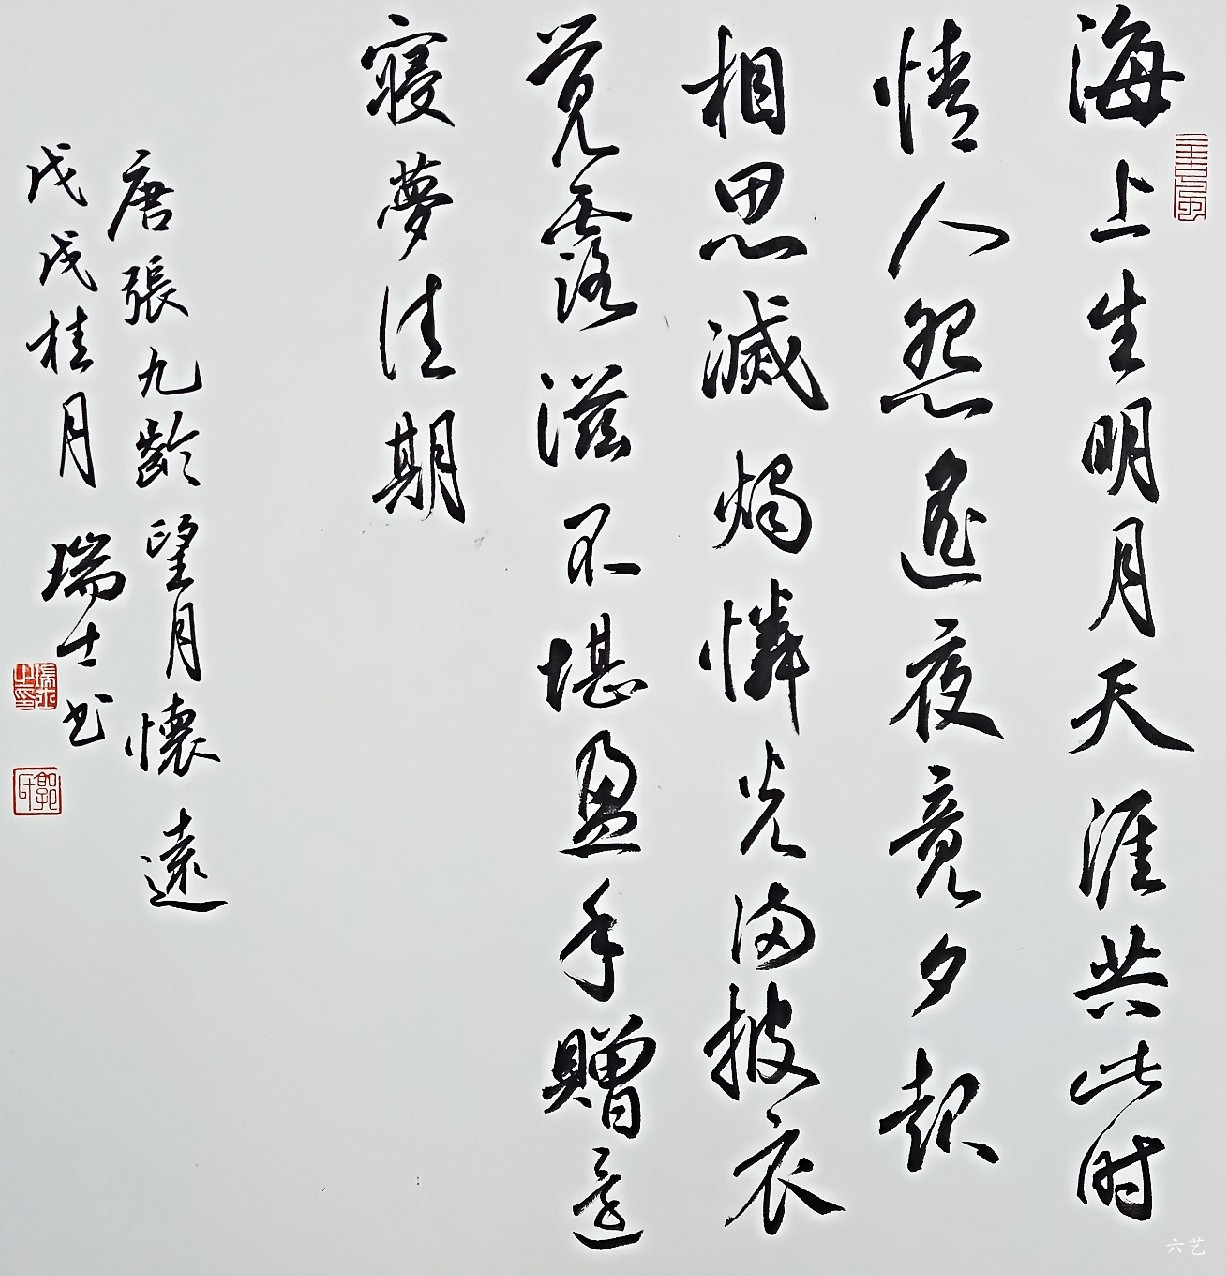 海上生明月天涯共此时
情人怨遥夜竟夕起
相思滅燭憐光满披衣
覺露滋不堪盈手贈還
寢夢佳期
唐張九齡望月懷遠
戊戌桂月 瑞士书
六艺